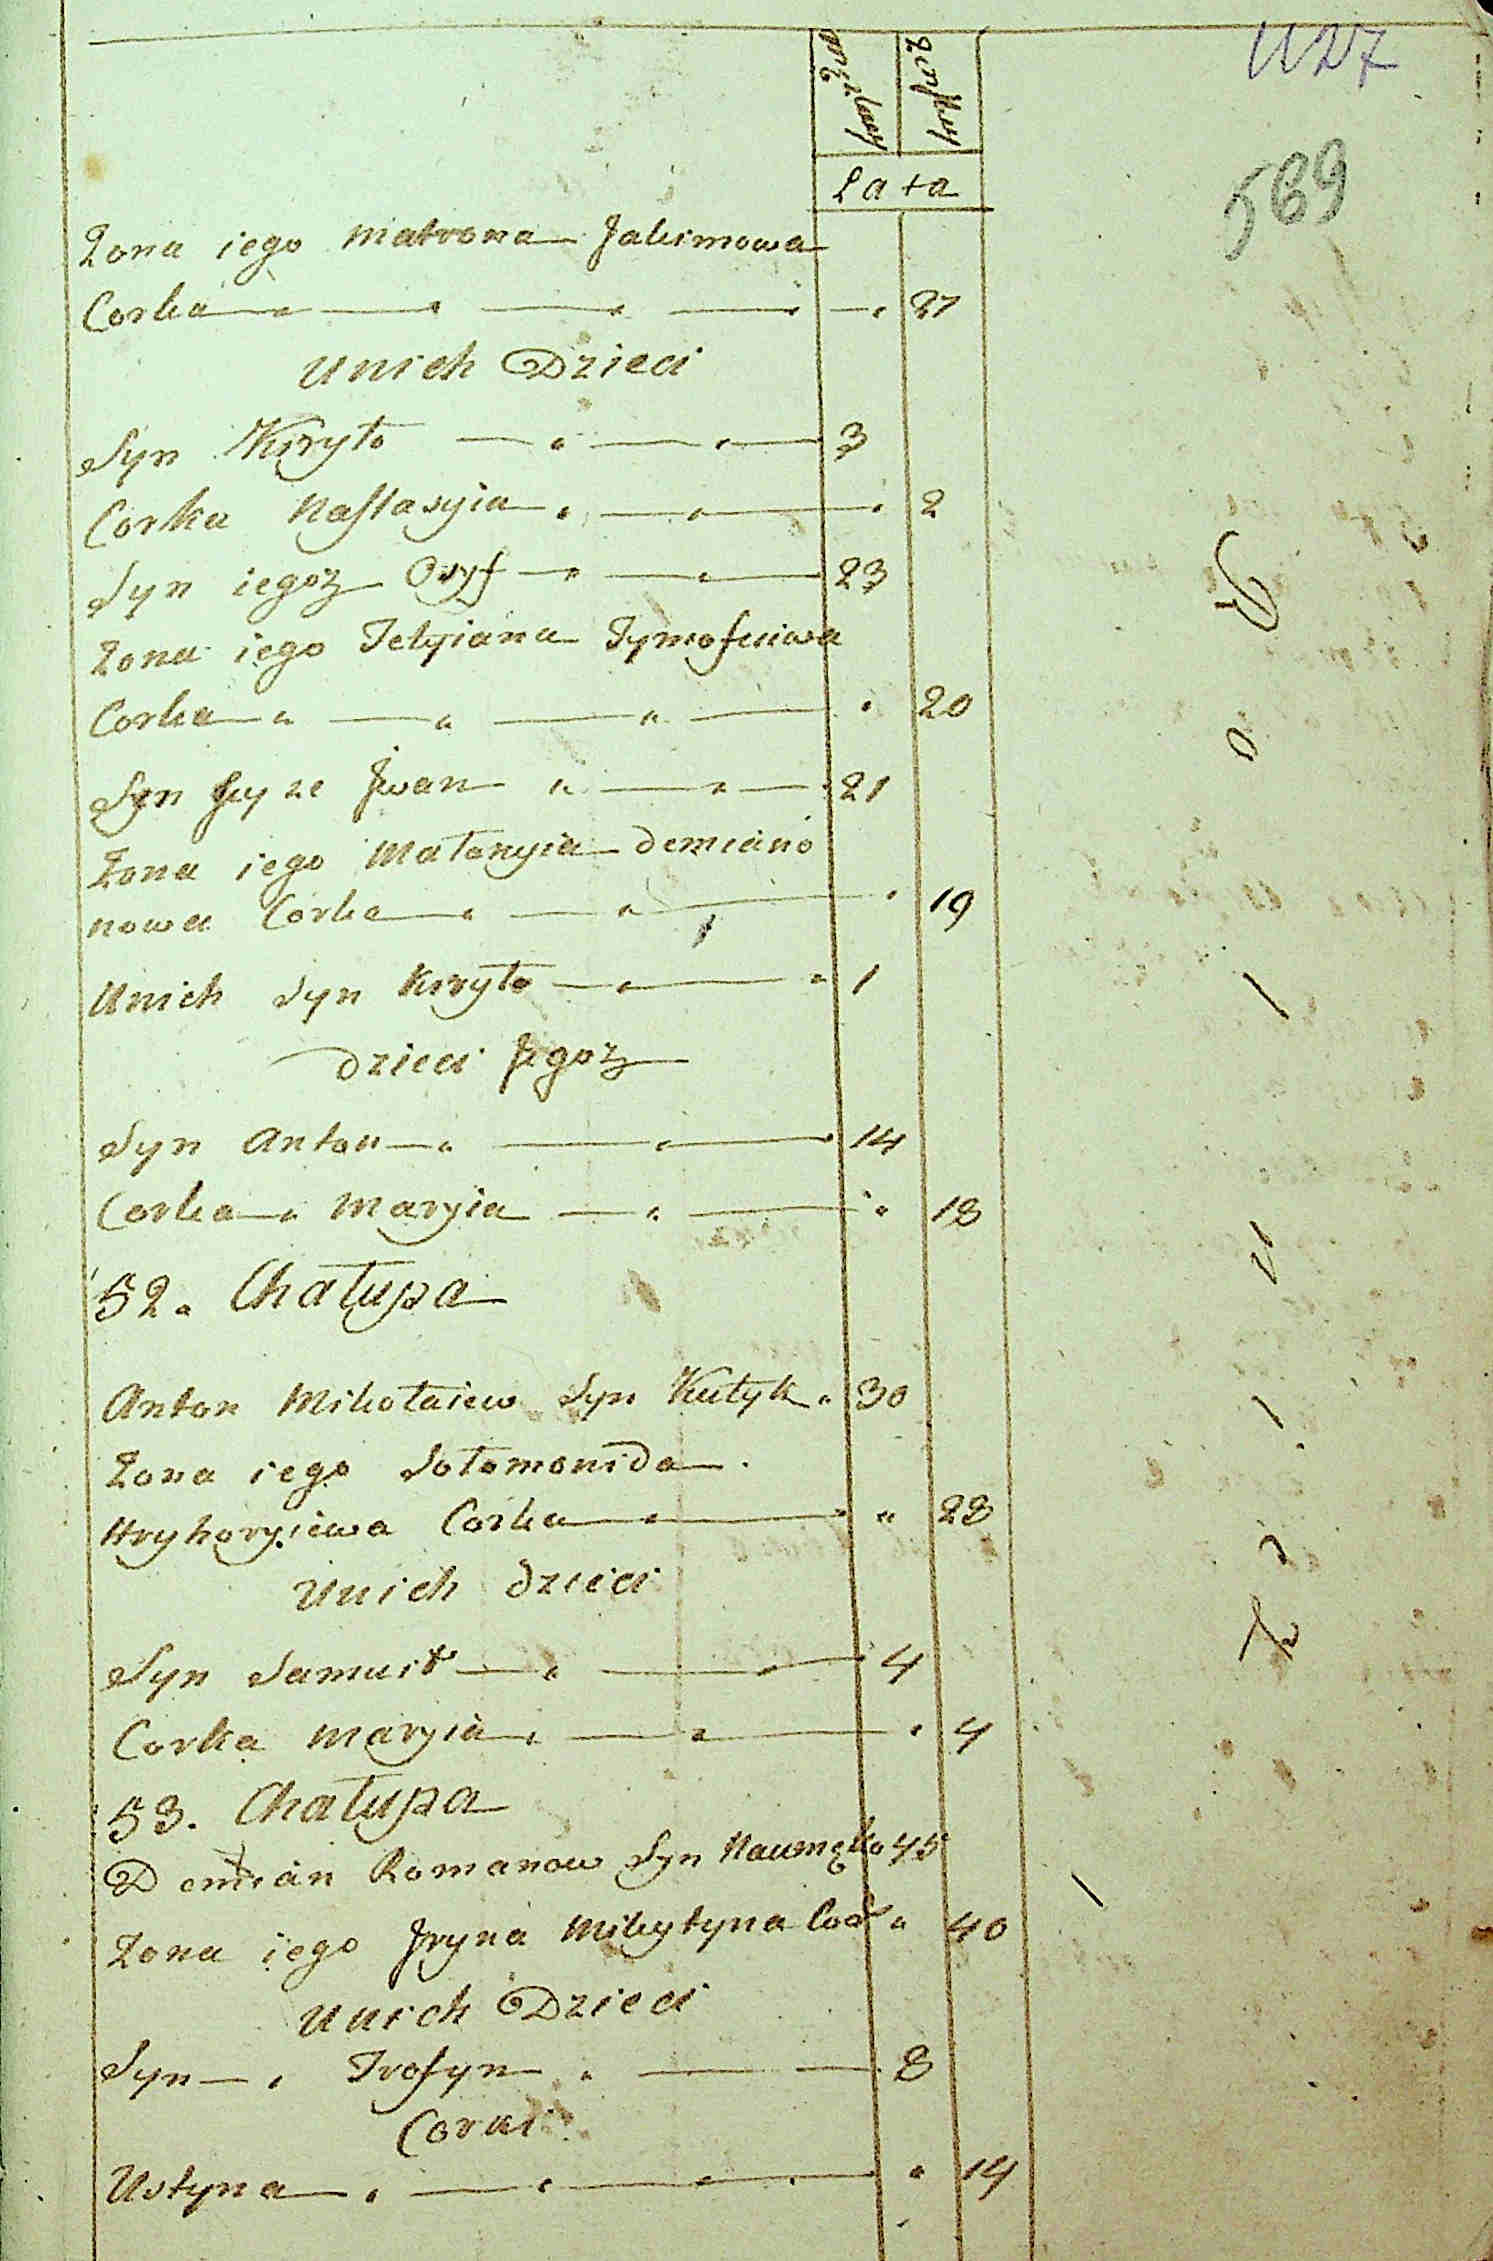 męzkiey żeńskiey
Lata
569
Zona iego Matrona Jakimowa
Corka 27
Unich Dzieci
Syn Kiryło 3
Corka Nastasyia 2
Syn iegoż Osyf 23
Zona iego Tetyiana Tymofeiowa
Corka 20
Syn Iwan 21
Zona iego Małanyia Demiano
nowa Corka 19
Unich Syn Kiryło 1
Dzieci Jegoż
Syn Anton 14
Corka Maryia 18
52. Chałupa
Anton Mikołaiew Syn Kułyk 30
Zona iego Sołomonida
Hryhoryiewa Corka 28
Unich Dzieci
Syn Samuił 4
Corka Maryia 4
53. Chałupa
Demian Romanow Syn 45
Zona iego Jryna Mikytyna Cor 40
Unich Dzieci
Syn Trofym 8
Corki
Ustyna 14